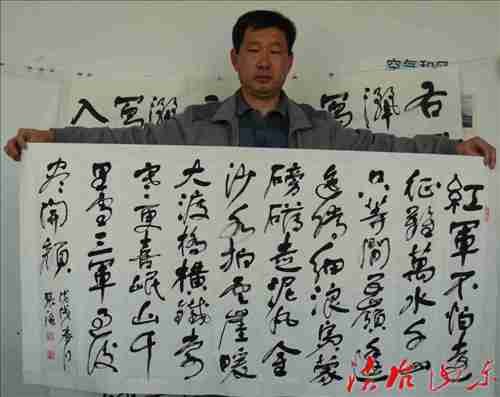 紅軍不怕遠
征難萬水千山
只等閒五嶺逶
迤騰細浪烏蒙
磅礴走泥丸金
沙水拍雲崖暖
大渡橋橫鐵索
寒更喜岷山千
里雪三軍過後
盡開顏
戊戌春月
空气和